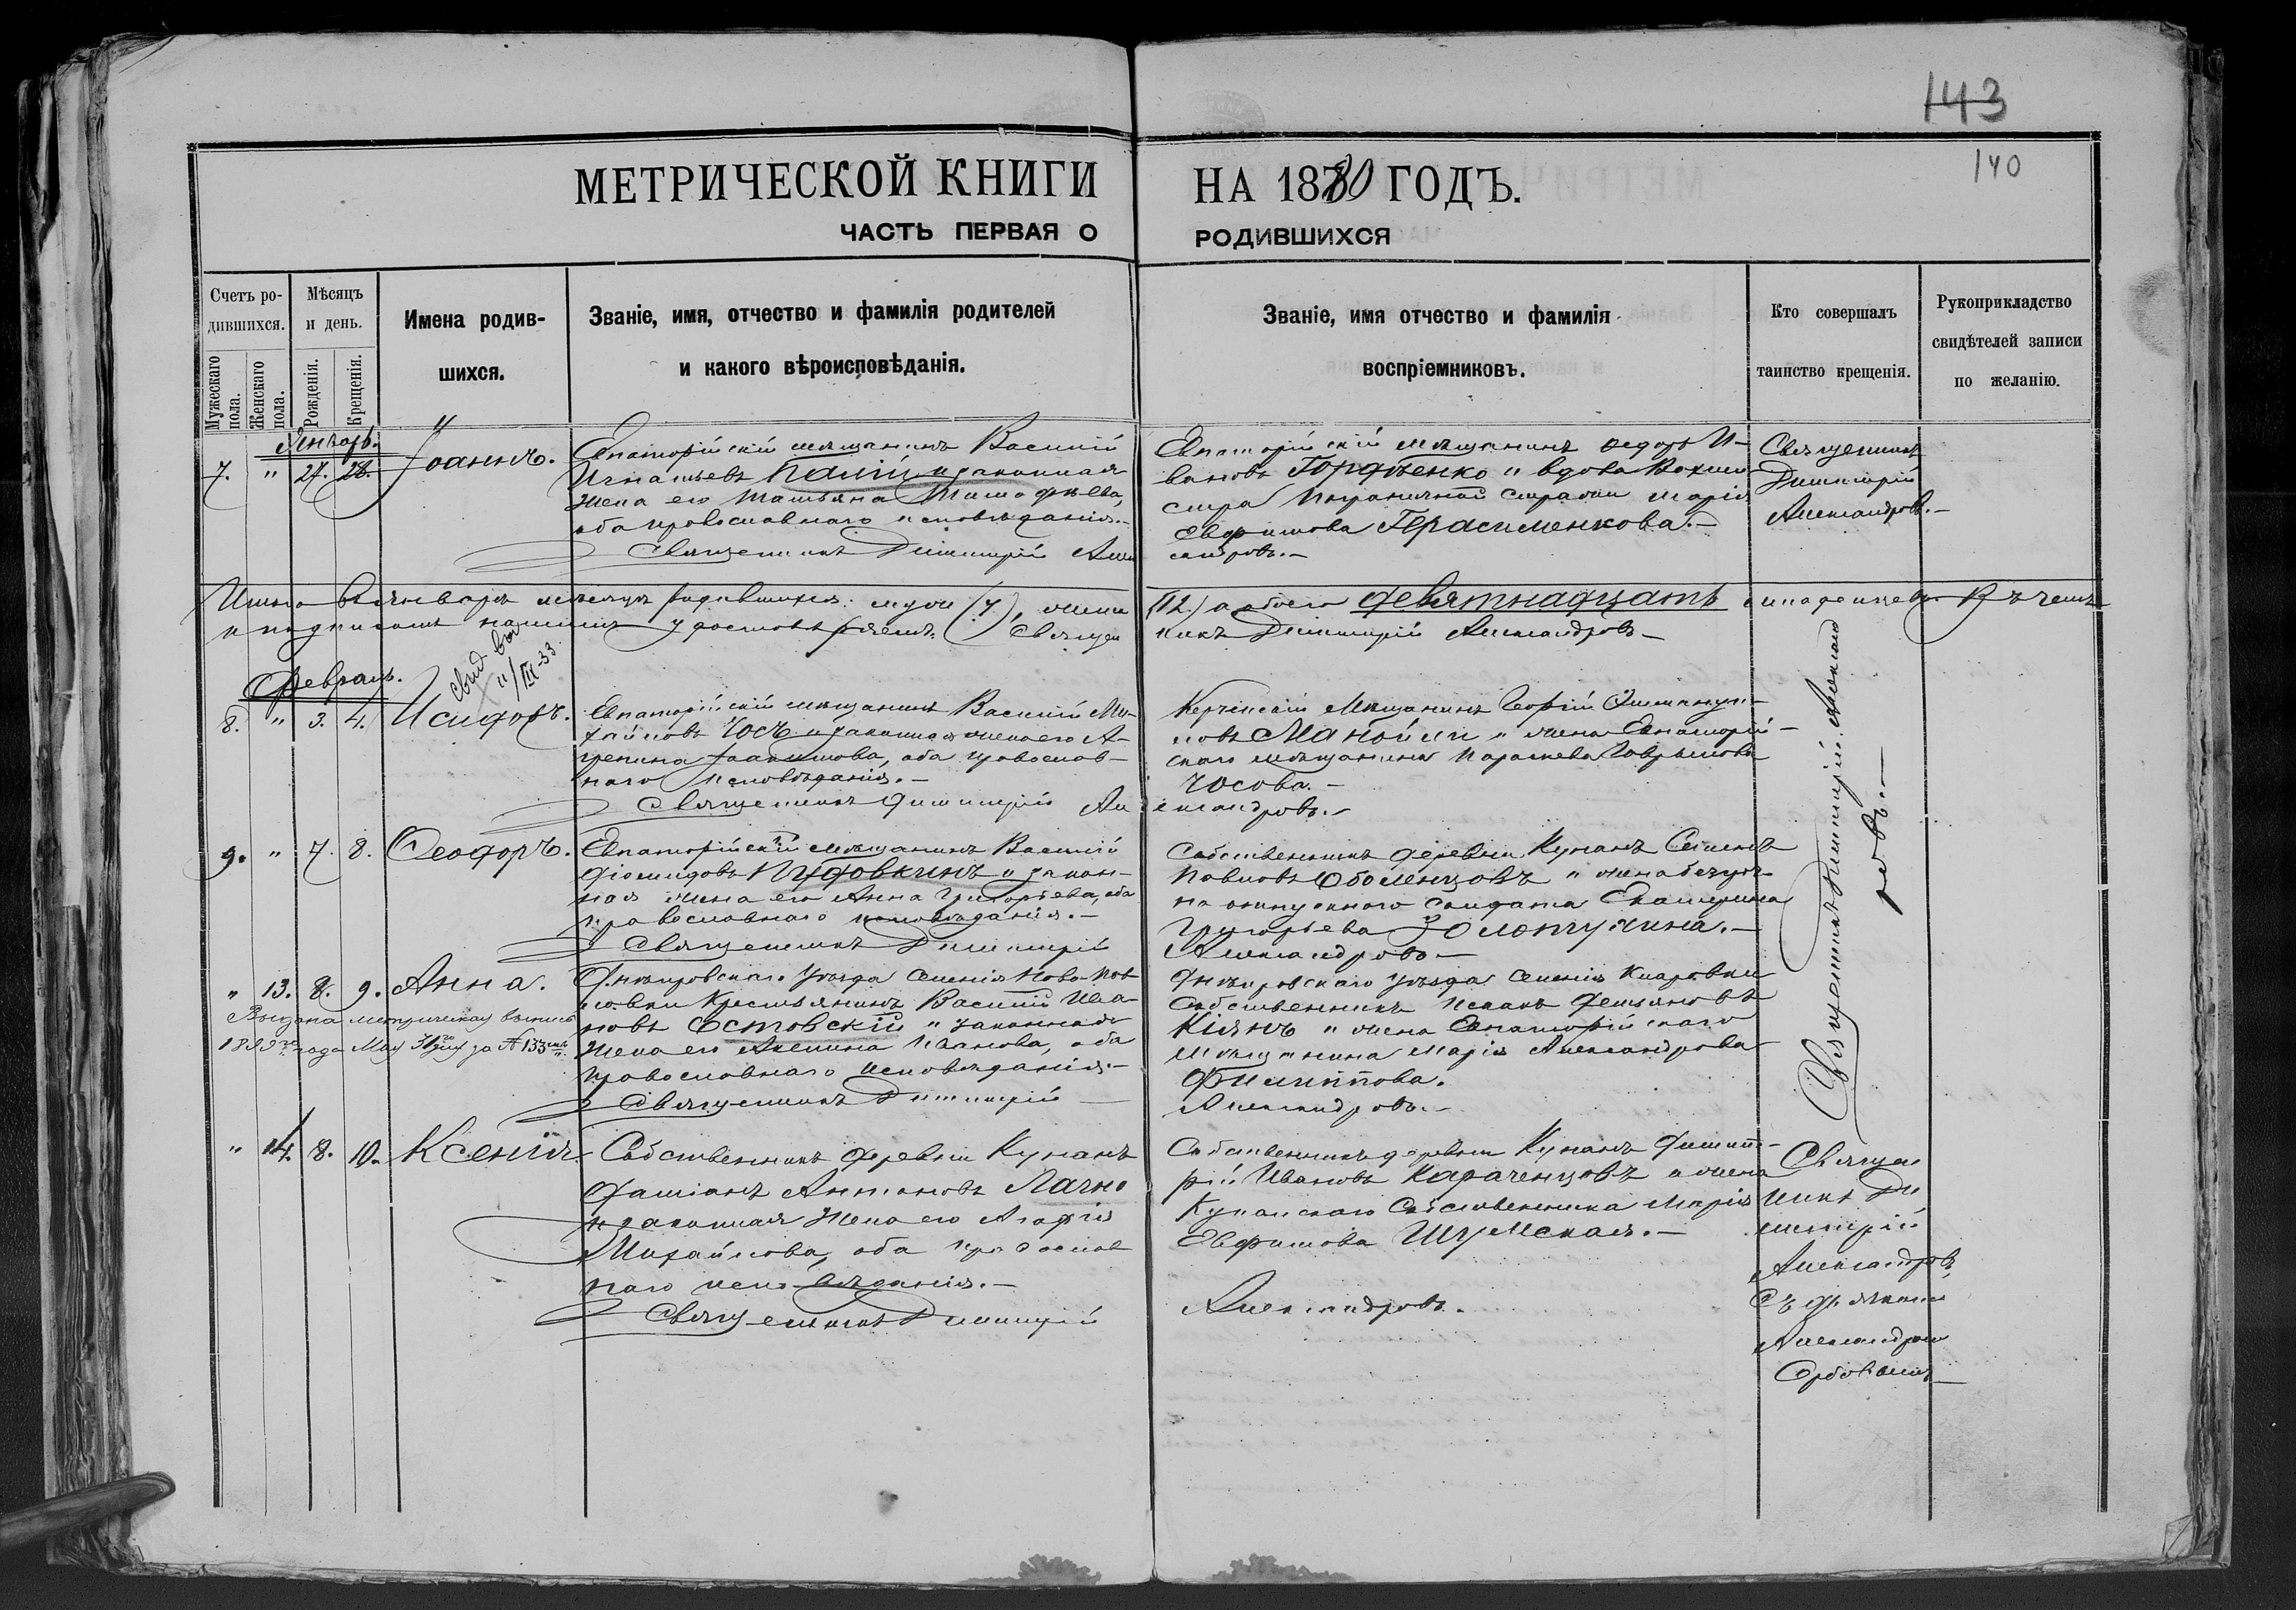 143
140
МЕТРИЧЕСКОЙ КНИГИ НА 1880 ГОДЪ.
ЧАСТЬ ПЕРВАЯ О РОДИВШИХСЯ
Счетъ ро-
дившихся.
Мужескаго
пола.
Женскаго
пола.
Мѣсяцъ
и день.
Рожденія.
Крещенія.
Имена родив-
шихся.
Званіе, имя, отчество и фамилія родителей
и какого вѣроисповѣданія.
Званіе, имя отчество и фамилія
воспріемниковъ.
Кто совершалъ
таинство крещенія.
Рукоприкладство
свидѣтелей записи
по желанію.
Январь.
7. " 27. 28. Іоаннъ.
Евпаторійскій мѣщанинъ Василій
Игнатьевъ Палій и законная
жена его Татьяна Тимофѣева,
оба православнаго исповѣданія.
Священникъ Димитрій Алек
Евпаторійскій мѣщанинъ Ѳедоръ И-
вановъ Гордѣенко и вдова
стража Марія
Евфимова Герасименкова.
сандровъ.
Священникъ
Димитрій
Александровъ.
Итого въ Январѣ мѣсяцѣ родившихся: муж (7), женск
(12) а обоего девятнадцать въ чемъ
и подписомъ нашимъ удостовѣряемъ. Священ
никъ Димитрій Александровъ
Февраль.
свид. выд
11/III-33
8. " 3. 4. Исидоръ.
Евпаторійскій мѣщанинъ Василій Ми-
хайловъ Чосъ и законная жена его А-
грепина Іоакимова, оба православ-
наго исповѣданія.
Священникъ Димитрій Ал
Керченскій Мѣщанинъ Георгій
новъ Манойли и жена Евпаторій-
скаго мѣщанина Параскева Гаврилова
Чосова.
ександровъ.
9. " 7. 8. Ѳеодоръ.
Евпаторійскій мѣщанинъ Василій
Діомидовъ Пудовкинъ и закон-
ная жена его Анна Григорьева, оба
православнаго исповѣданія.
Священникъ Димитрій
Собственникъ деревни Кунанъ Семенъ
Павловъ Оболенцовъ и жена безсроч-
но отпускного солдата Екатерина
Григорьева Золотухина.
Александровъ
" 13. 8. 9. Анна.
Выдана метрическая выпись
1899го года Мая 31 дня за № 133
Днѣпровскаго Уѣзда Селенія Ново-Пав
ловки Крестьянинъ Василій Ива-
новъ Состовскій и законная
жена его Акелина Иванова, оба
православнаго исповѣданія.
Священникъ Димитрій
Днѣпровскаго Уѣзда Селенія Кларовки
Собственникъ Исаакъ Демьяновъ
Кіянъ и жена Евпаторійскаго
Мѣщанина Марія Александрова
Филиппова.
Александровъ.
Священникъ Димитрій Александ
ровъ.
" 14. 8. 10. Ксенія.
Собственникъ Деревни Кунанъ
Даміанъ Антоновъ Лачно
и законная жена его Агафія
Михайлова, оба православ
наго исповѣданія.
Священникъ Димитрій
Собственникъ деревни Кунанъ Димит-
рій Ивановъ Караченцовъ и жена
Кунанскаго Собственника Марія
Евфимова Шумская.
Александровъ.
Священ
никъ Ди
митрій
Александровъ,
Александром